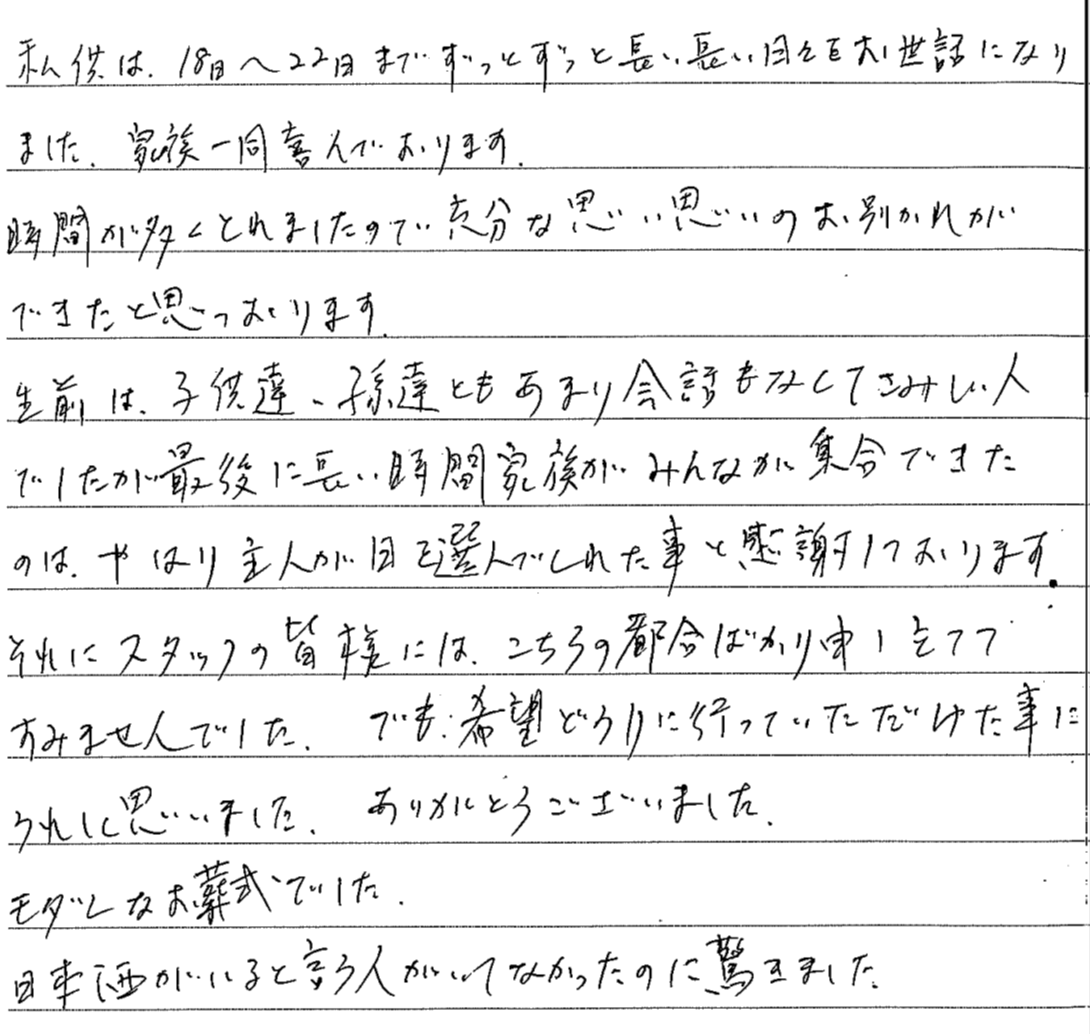 私供は、18日〜22日までずっとずっと長い長い日々をお世話になり
ました。家族一同喜んでおります。
時間が多くとれましたので充分な思い思いのお別かれが
できたと思っおります。
生前は、子供達、孫達ともあまり会話もなくてさみしい人
でしたが最後に長い時間家族がみんなが集合できた
のは、やはり主人が日を選んでくれた事と感謝しております。
それにスタッフの皆様には、こちらの都合ばかり申し立てて
すみませんでした。でも、希望どうりに行っていただけた事に
うれしく思いいました。ありがとうございました。
モダンなお葬式でした。
日本酒がいると言う人がいてなかったのに驚きました